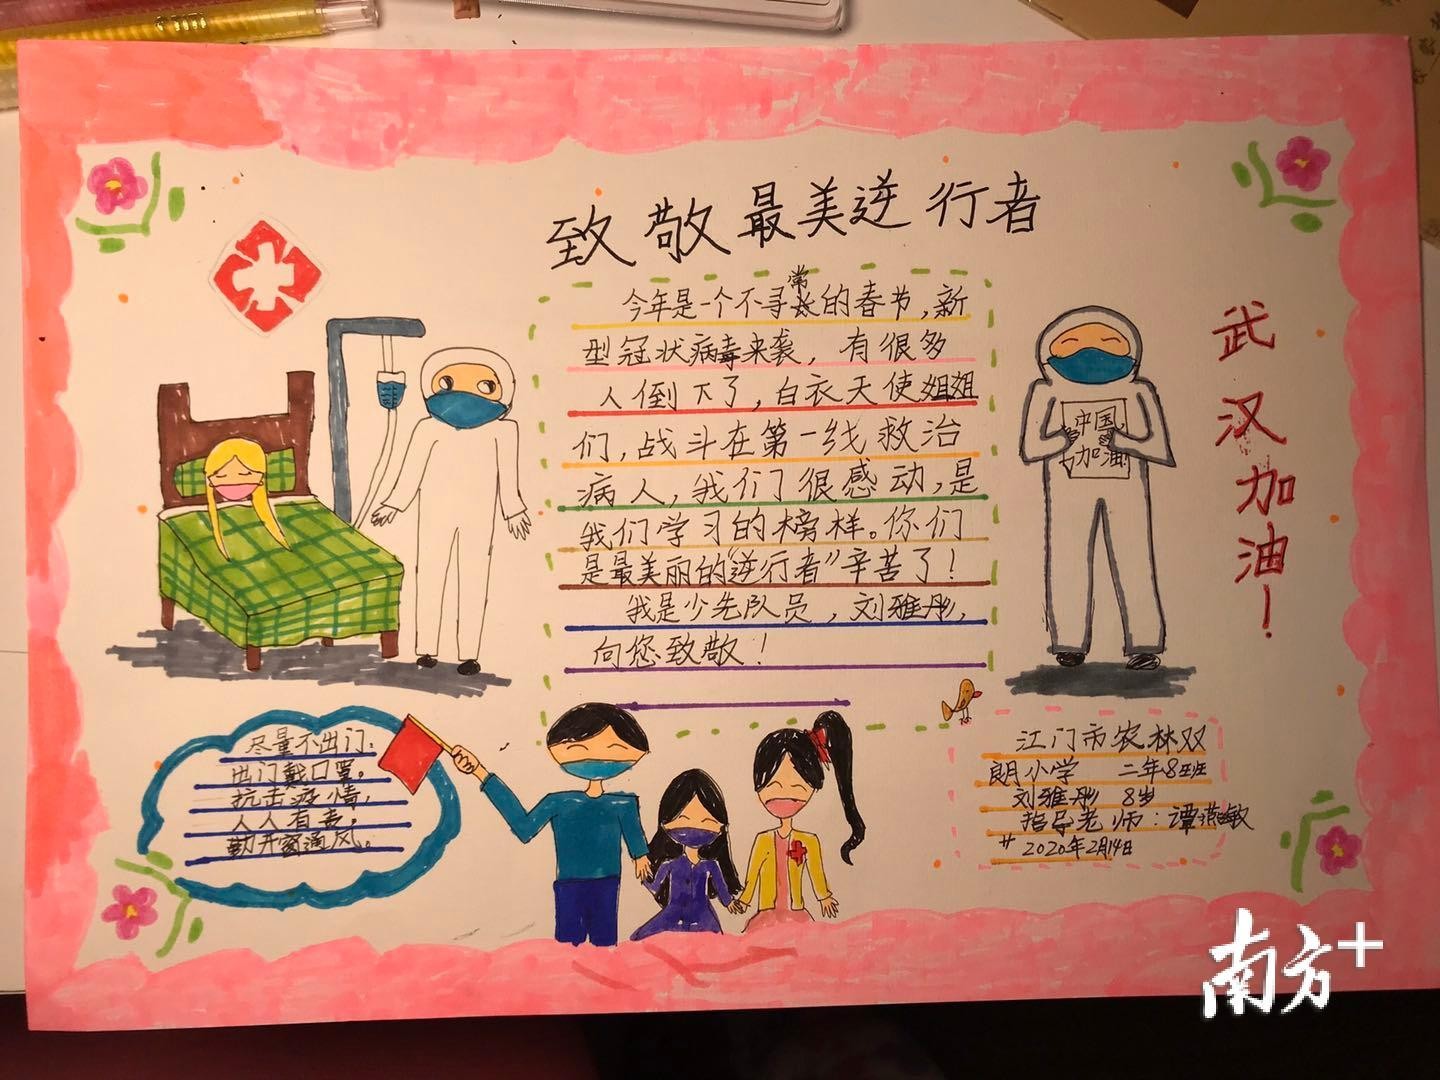 致敬最美逆行者
今年是一个不寻常的春节,新
型冠状病毒来袭,有很多
人倒下了,白衣天使姐姐
们,战斗在第一线救治
病人,我们很感动,是
我们学习的榜样。你们
是最美丽的“逆行者”辛苦了!
我是少先队员,刘雅彤,
向您致敬!
中国,
加油!
武汉加油!
尽量不出门,
出门戴口罩,
抗击疫情,
人人有责,
勤开窗通风。
江门市农林双
朗小学 二年8班
刘雅彤 8岁
指导老师:谭燕敏
2020年2月14日
南方+